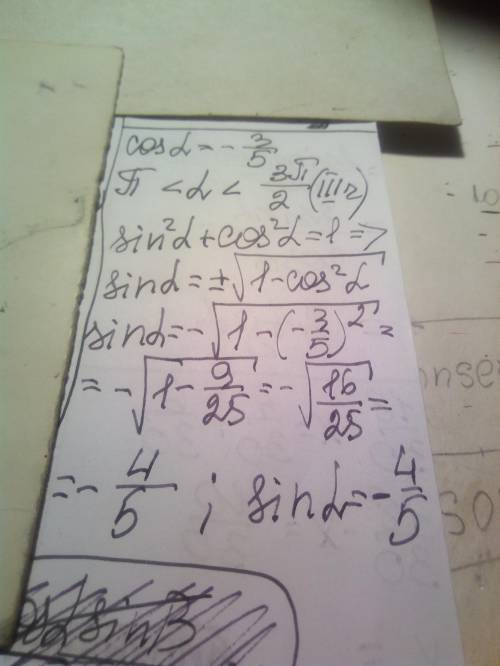 cosα = -3/5
π < α < 3π/2 (III ч)
sin²α + cos²α = 1 =>
sinα = ±√(1-cos²α)
sinα = -√(1-(-3/5)²) =
= -√(1-9/25) = -√(16/25) =
= -4/5 ; sinα = -4/5